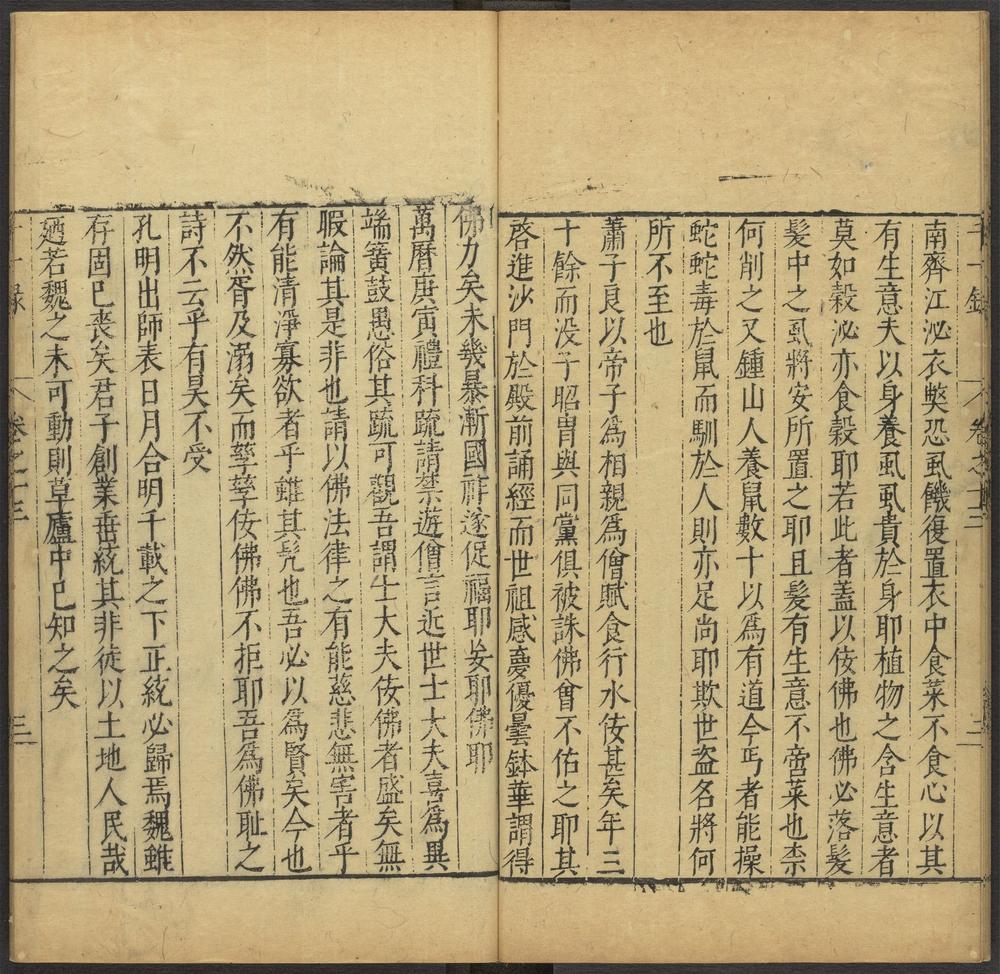 卷之十三
二
南齊江泌衣獘恐虱饑復置衣中食菜不食心以其
有生意夫以身養虱虱貴於身耶植物之含生意者
莫如榖泌亦食榖耶若此者蓋以侫佛也佛必落髮
髮中之虱將安所置之耶且髮有生意不啻菜也柰
何削之又鍾山人養鼠數十以爲有道今丐者能操
蛇蛇毒於鼠而馴於人則亦足尚耶欺世盜名將何
所不至也
蕭子良以帝子爲相親爲僧賦食行水侫甚矣年三
十餘而没子昭胄與同黨俱被誅佛會不佑之耶其
啓進沙門於殿前誦經而世祖感夣優曇鉢華謂得
佛力矣未幾暴漸國祚遂促福耶妄耶佛耶
萬曆庚寅禮科疏請禁遊僧言近世士大夫喜爲異
端簧鼓愚俗其疏可觀吾謂士大夫侫佛者盛矣無
暇論其是非也請以佛法律之有能慈悲無害者乎
有能清淨寡欲者乎雖其髠也吾必以爲賢矣今也
不然胥及溺矣而孳孳侫佛佛不拒耶吾爲佛耻之
詩不云乎有昊不受
孔明出師表日月合明千載之下正統必歸焉魏雖
存固已喪矣君子創業垂統其非徒以土地人民哉
廼若魏之未可動則草廬中已知之矣
卷之十三
三